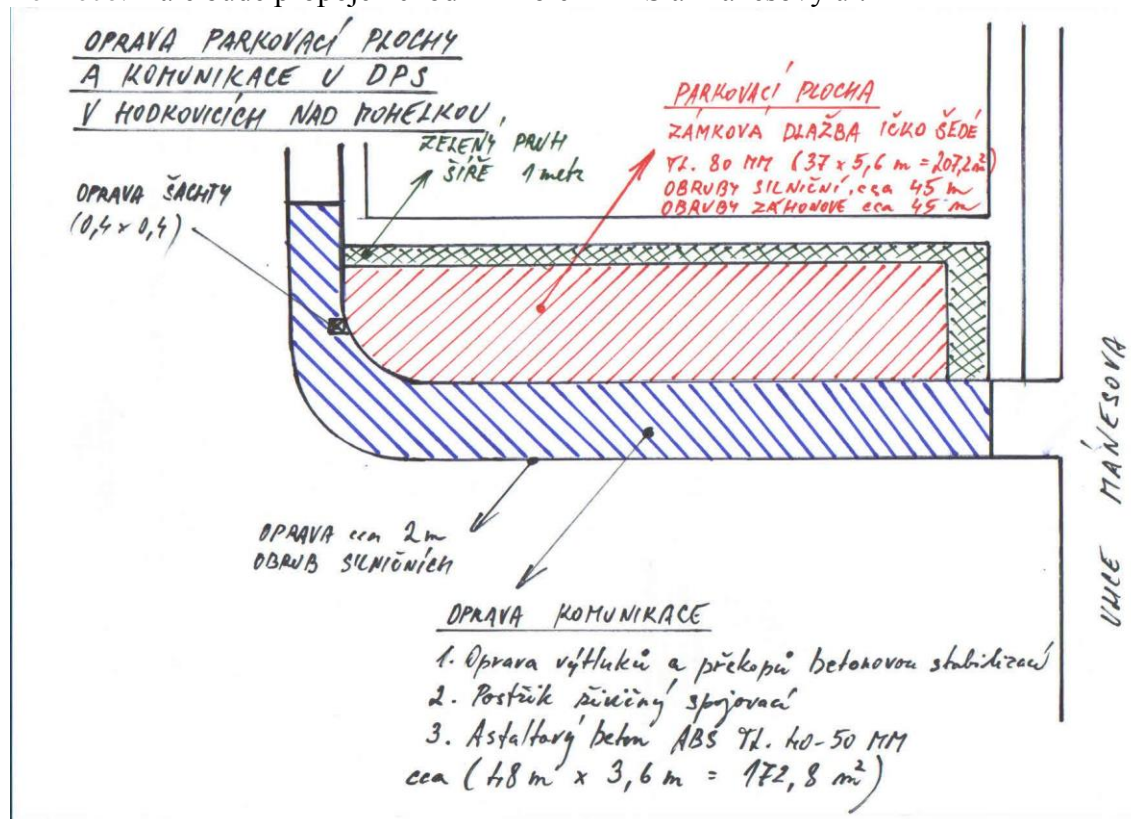 OPRAVA PARKOVACÍ PLOCHY
A KOMUNIKACE U DPS
V HODKOVICÍCH NAD MOHELKOU
ZELENÝ PRUH
ŠÍŘE 1 metr
OPRAVA ŠACHTY
(0,4 x 0,4)
PARKOVACÍ PLOCHA
ZÁMKOVÁ DLAŽBA IČKO ŠEDÉ
TL. 80 MM (37 x 5,6 m = 207,2 m²)
OBRUBY SILNIČNÍ, cca 45 m
OBRUBY ZÁHONOVÉ cca 45 m
ULICE MÁNESOVA
OPRAVA cca 2 m
OBRUB SILNIČNÍCH
OPRAVA KOMUNIKACE
1. Oprava výtluků a překopů betonovou stabilizací
2. Postřik živičný spojovací
3. Asfaltový beton ABS TL. 40-50 MM
cca (48 m x 3,6 m = 172,8 m²)